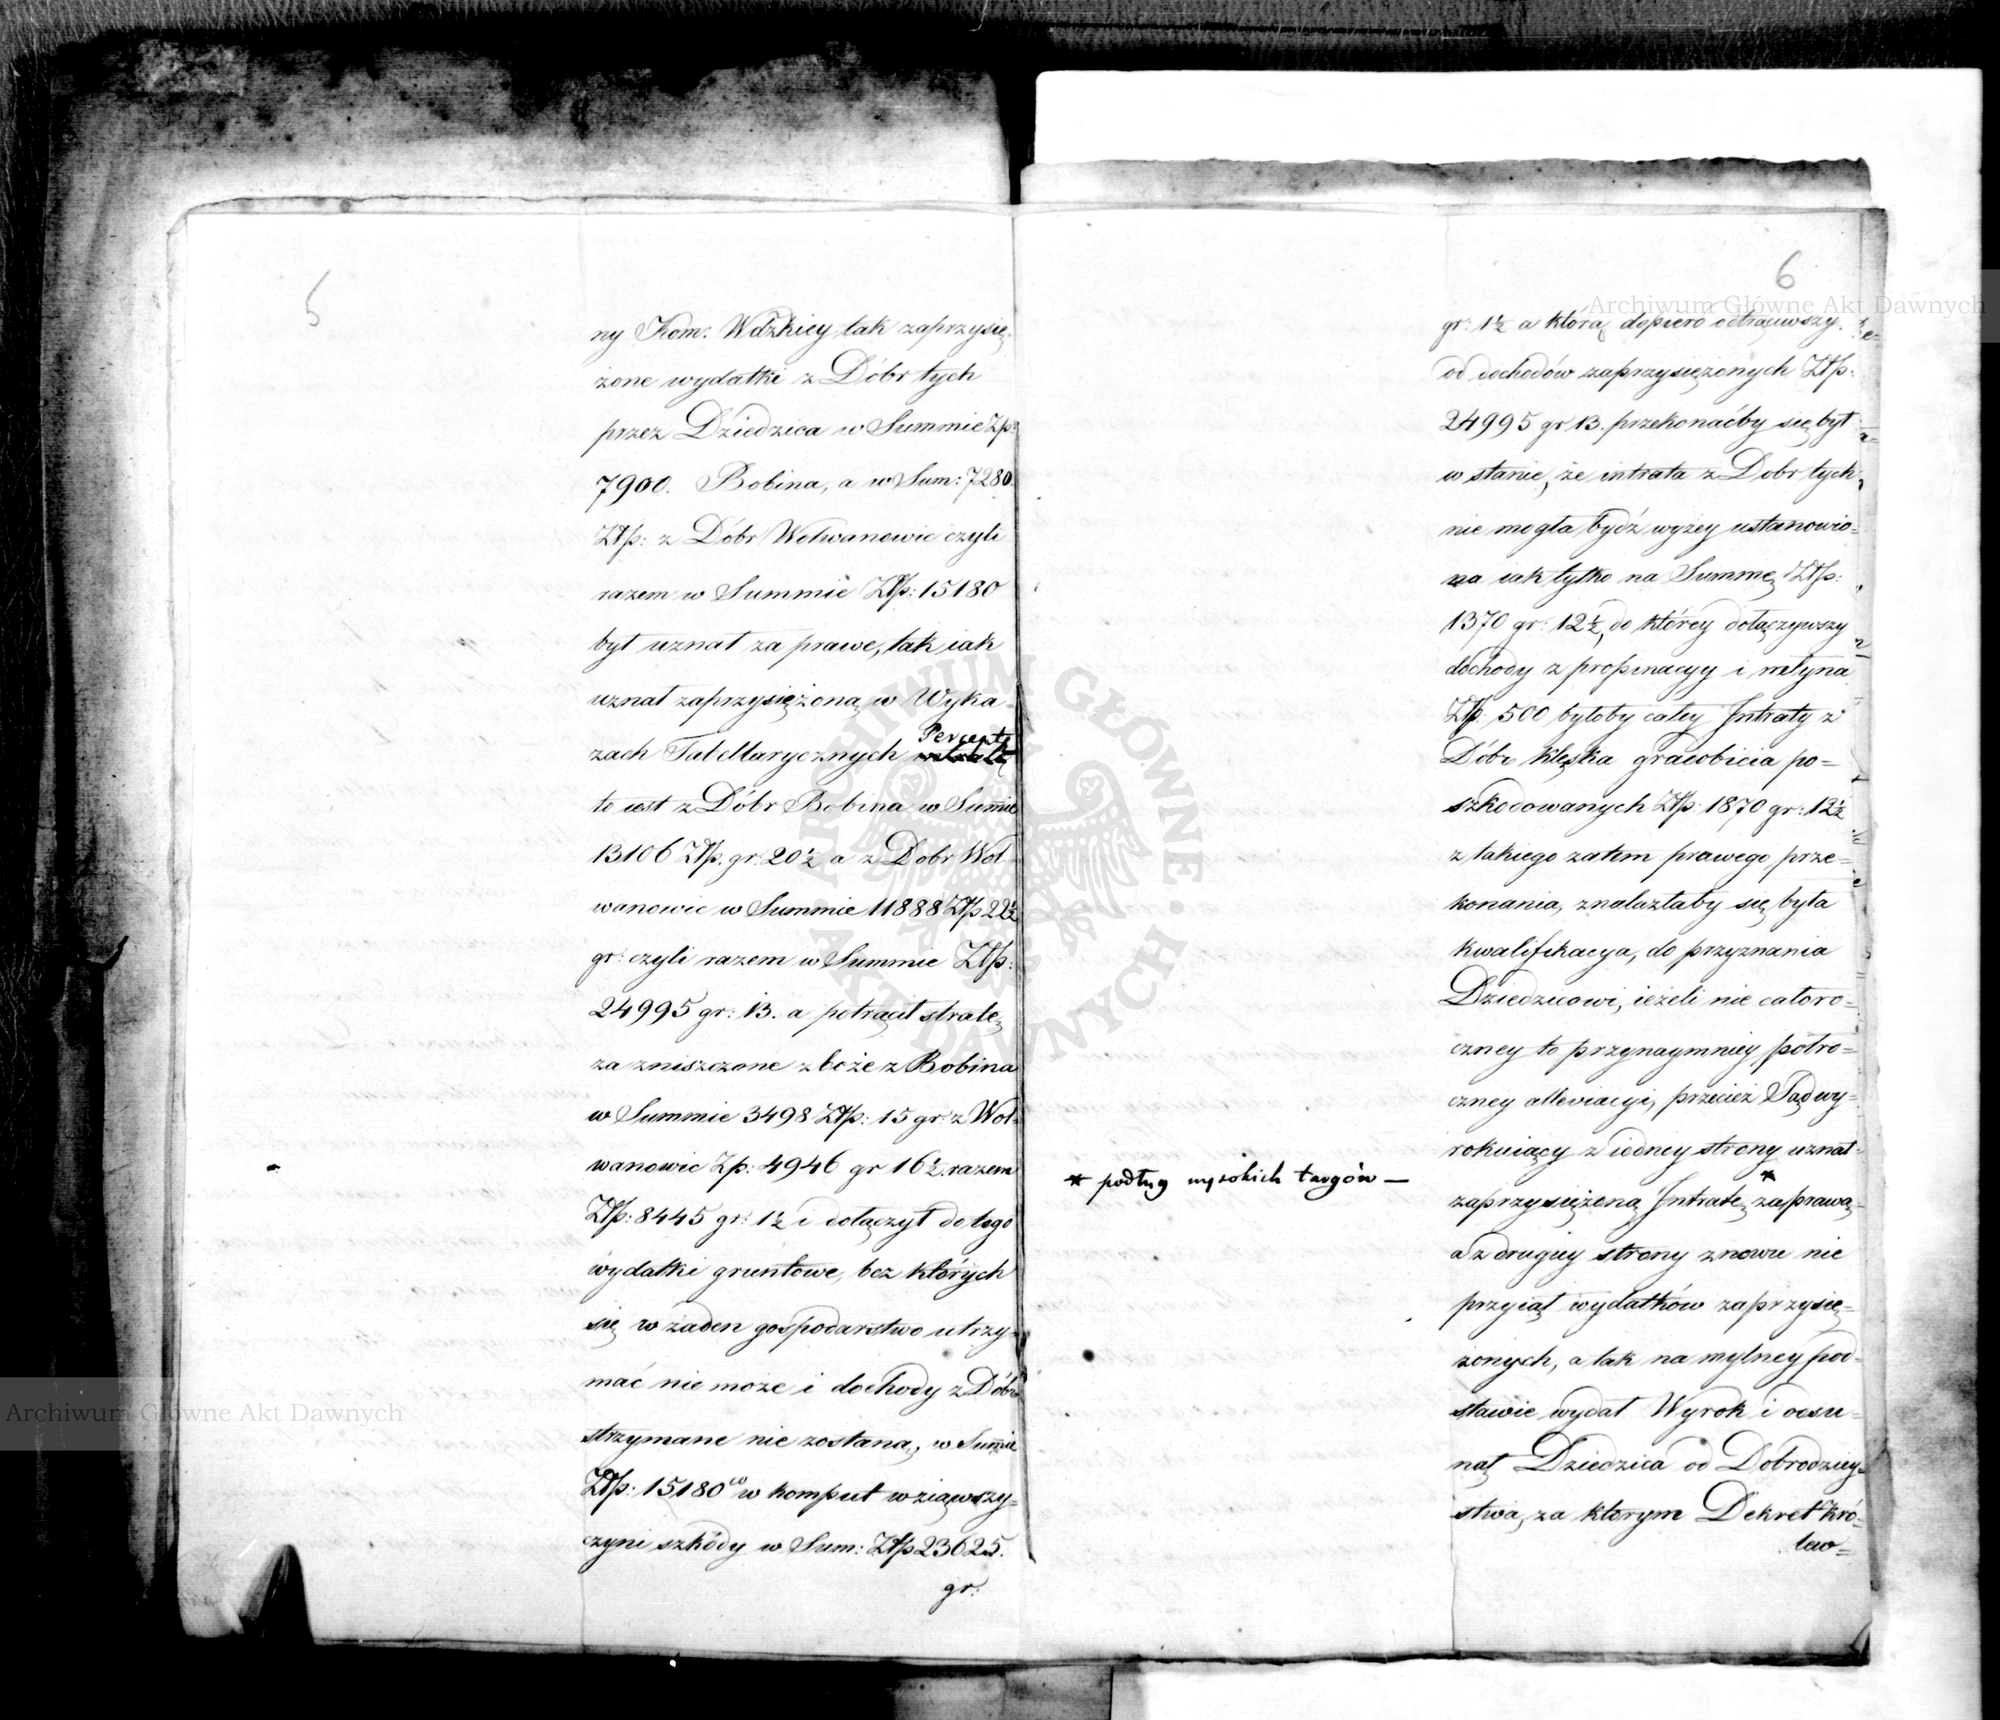 5
ny Kom: Wdzkiey tak zaprzysię-
żone wydatki z Dóbr tych
przez Dziedzica w Summie Zp:
7900. Bobina, a w Sum: 7280.
Złp: z Dóbr Wolwanowic czyli
razem w Summie Złp: 15180
był uznał za prawe, tak iak
uznał zaprzysiężoną w Wyka-
zach Tabellarycznych Perceptę
to iest z Dóbr Bobina w Summie
13106 Złp. gr: 20½ a z Dobr Wol-
wanowic w Summie 11888 Złp 22½
gr: czyli razem w Summie Złp:
24995 gr: 13. a potrącił stratę
za zniszczone zboże z Bobina
w Summie 3498 Złp: 15 gr: z Wol-
wanowic Zp: 4946 gr 16½ razem
Złp: 8445 gr: 1½ i dołączył do tego
wydatki gruntowe, bez których
się w żaden gospodarstwo utrzy-
mać nie może i dochody z Dóbr
strzymane nie zostaną, w Summie
Złp: 15180 co w komput wziąwszy-
czyni szkódy w Sum: Złp 23625.
gr:
6
gr: 1½ a którą dopiero odtrąciwszy
od dochodów zaprzysiężonych Złp:
24995 gr 13. przekonaćby się był
w stanie, że intrata z Dobr tych
nie mogła bydź wyżey ustanowio-
na iak tylko na Summę Złp:
1370 gr: 12½, do którey dołączywszy
dochody z propinacyy i młyna
Złp: 500 byłoby całey Intraty z
Dóbr klęska gradobicia po-
szkodowanych Złp: 1870 gr: 12½
z takiego zatem prawego prze-
konania, znalazłaby się była
kwalifikacya, do przyznania
Dziedzicowi, ieżeli nie cáłoro-
czney to przynaymniey półro-
czney alleviacyi, przecież Sąd wy-
rokuiący z iedney strony uznał
* podług wysokich targów —
zaprzysiężoną Intratę * za prawą
a z drugiey strony znowu nie
przyiął wydatków zaprzysię-
żonych, a tak na mylney pod-
stawie wydał Wyrok i odsu-
nął Dziedzica od Dobrodziey-
stwa, za którym Dekret Kró-
lew=
Archiwum Główne Akt Dawnych
Archiwum Główne Akt Dawnych
ARCHIWUM GŁÓWNE AKT DAWNYCH